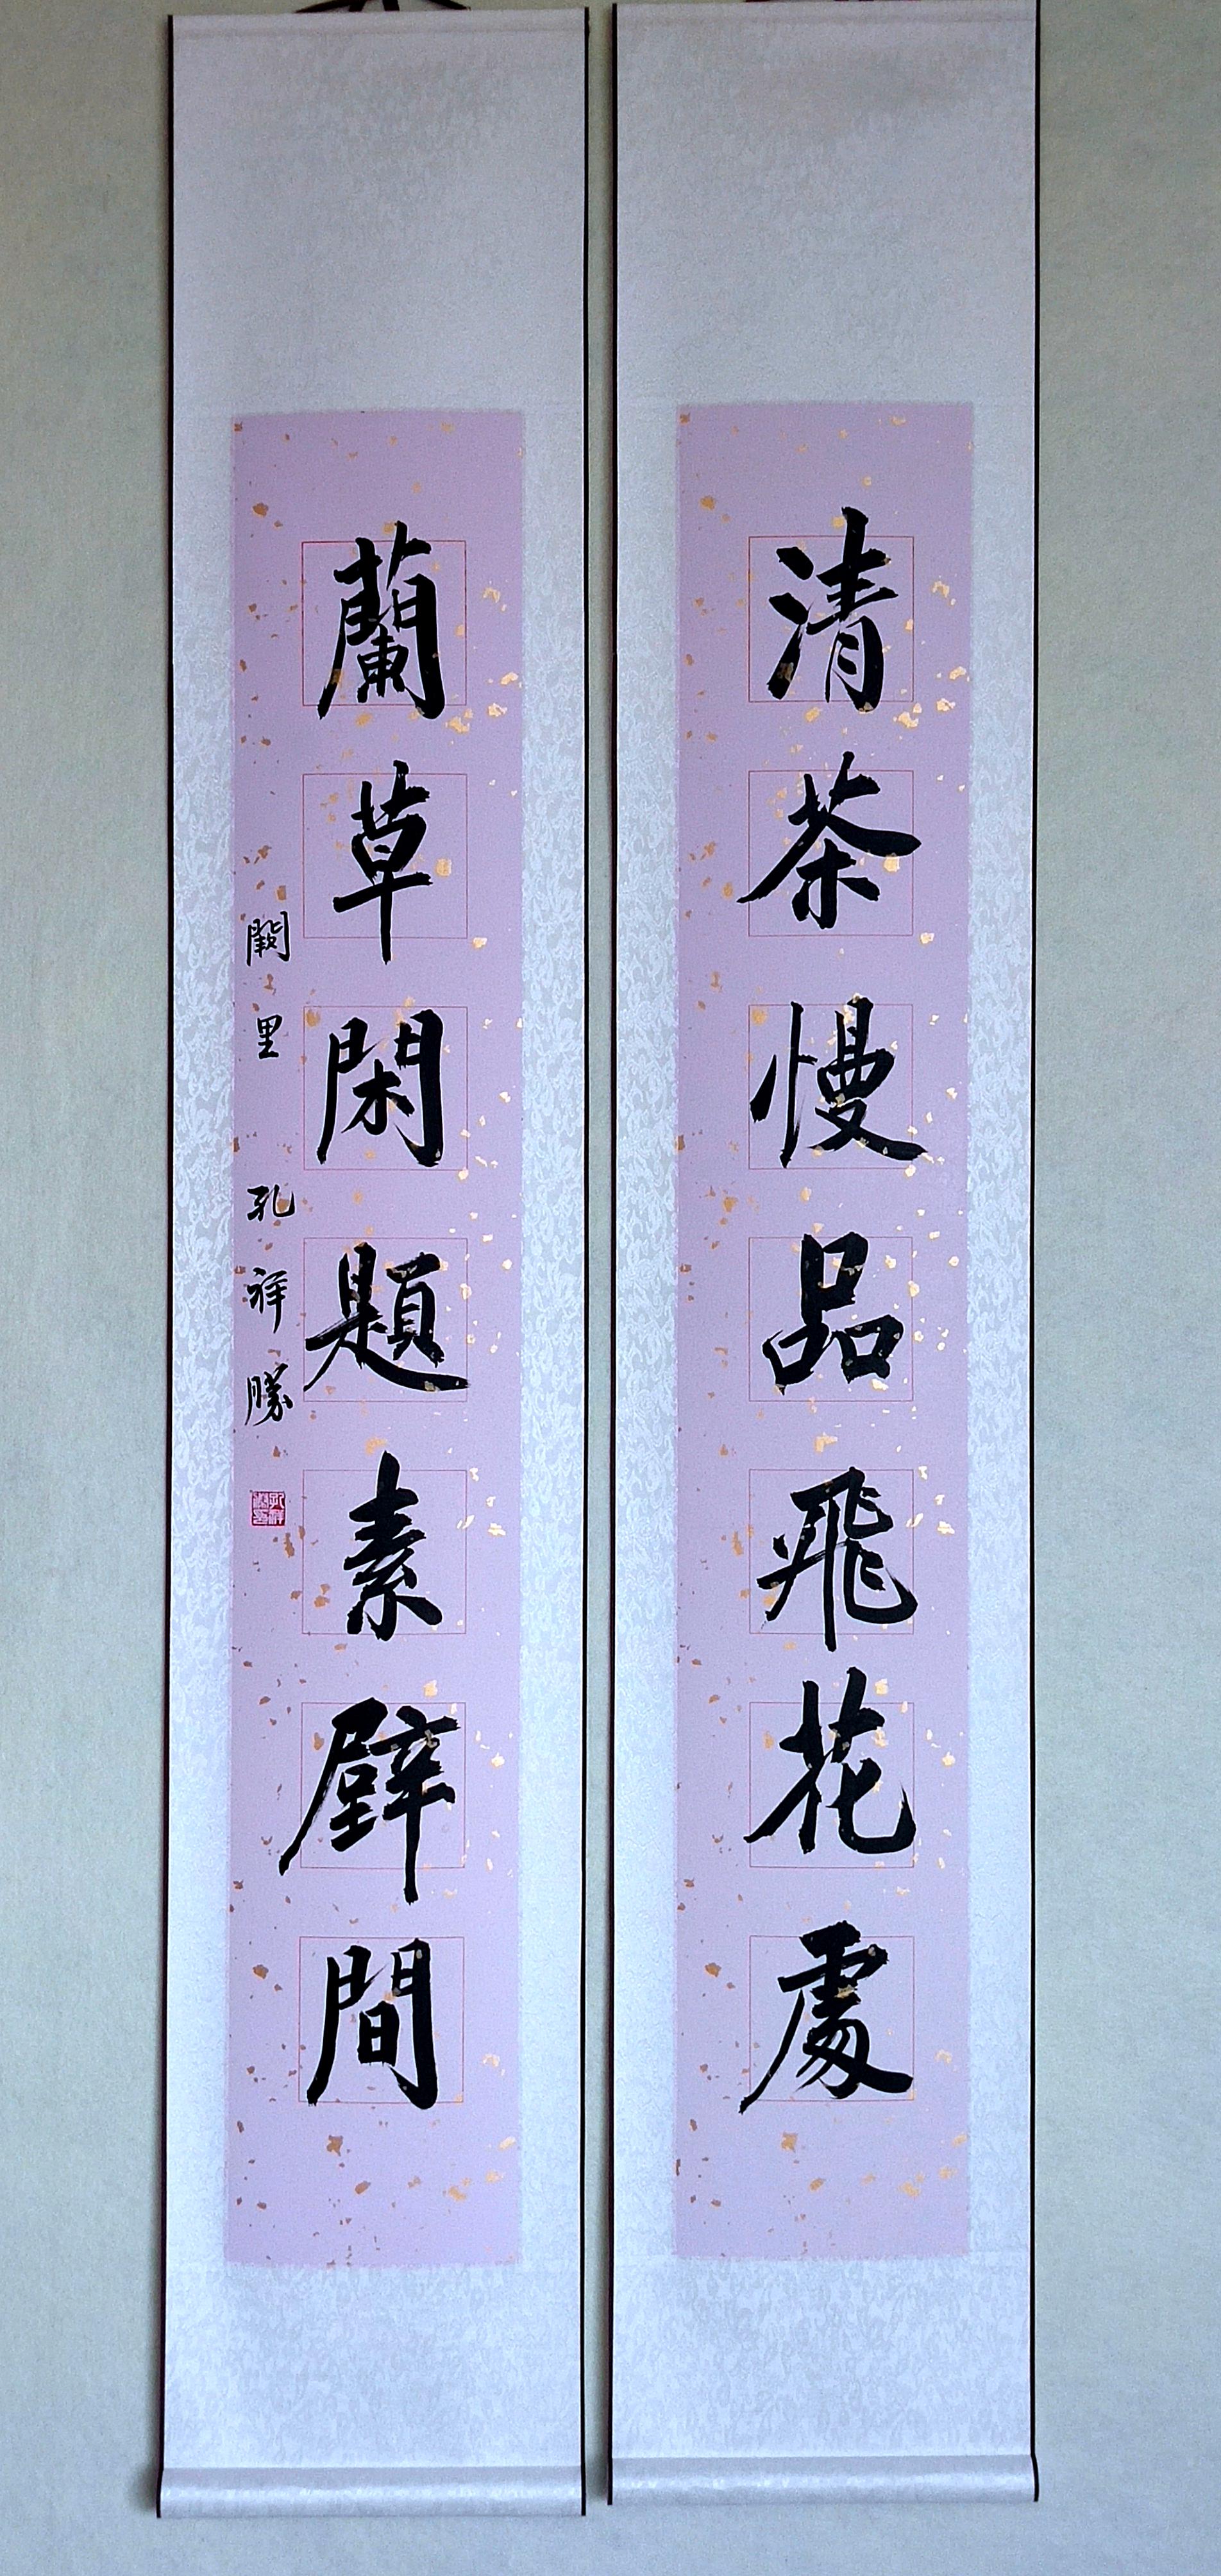 清茶慢品飛花處
蘭草閑題素壁間
闕里 孔祥勝